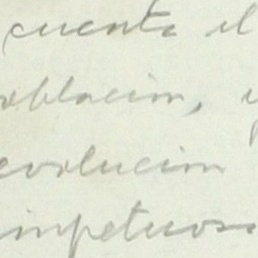 cuenta el
oblacion, y
evolucion
impetuosa